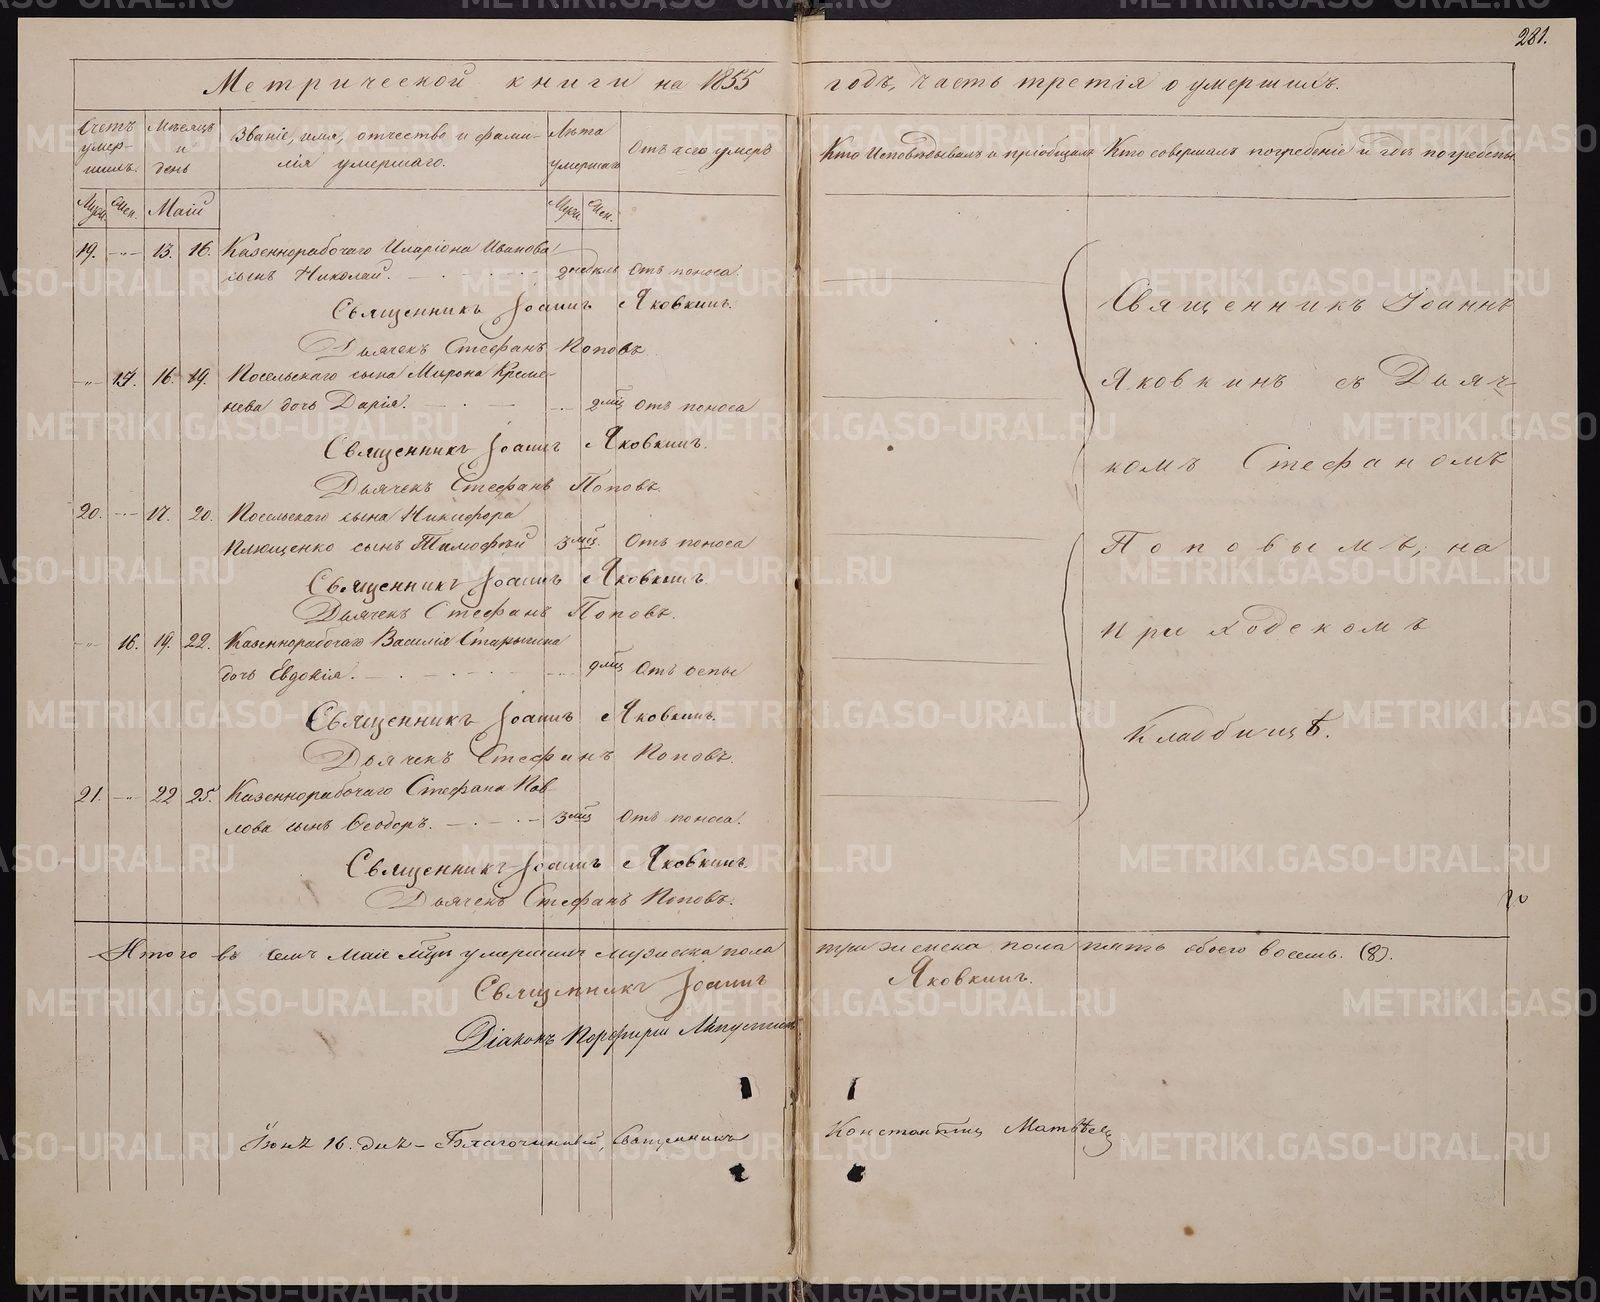 281.
Метрической книги на 1855 годъ, часть третія о умершихъ.
Счетъ умер- шихъ.
Мѣсяцъ и день
Званіе, имя, отчество и фами-
лія умершаго.
Лѣта умершаго
Отъ чего умеръ
Кто Исповѣдывалъ и пріобщалъ
Кто совершалъ погребеніе и гдѣ погребены
Муж. Жен. Маій Муж. Жен.
19. -„- 13. 16. Казеннорабочаго Иларіона Иванова
сынъ Николай. 2 недѣль Отъ поноса.
Священникъ Іоаннъ Яковкинъ.
Дьячекъ Стефанъ Поповъ
-„- 17. 16. 19. Посельскаго сына Мирона Креме-
нева дочь Дарія. 2 мѣс Отъ поноса
Священникъ Іоаннъ Яковкинъ.
Дьячекъ Стефанъ Поповъ.
20. -„- 17. 20. Посельскаго сына Никифора
Плющенко сынъ Тимофѣй 3 мѣс. Отъ поноса
Священникъ Іоаннъ Яковкинъ.
Дьячекъ Стефанъ Поповъ.
-„- 16. 19. 22. Казеннорабочаго Василія Старыгина
дочь Евдокія. 9 мѣс Отъ оспы
Священникъ Іоаннъ Яковкинъ.
Дьячекъ Стефанъ Поповъ.
21. -„- 22 25. Казеннорабочаго Стефана Пав-
лова сынъ Ѳеодоръ. 3 мѣс Отъ поноса.
Священникъ Іоаннъ Яковкинъ.
Дьячекъ Стефанъ Поповъ.
Священникъ Іоаннъ
Яковкинъ съ Дьяч-
комъ Стефаномъ
Поповымъ, на
Приходскомъ
Кладбищѣ.
Итого въ семъ Маіе мѣцѣ умершихъ мужеска пола три женска пола пять обоего восемь. (8).
Священникъ Іоаннъ Яковкинъ.
Діаконъ Порфирій
Іюнѣ 16. дня Благочинный, Священникъ Константинъ Матвѣевъ
METRIKI.GASO-URAL.RU